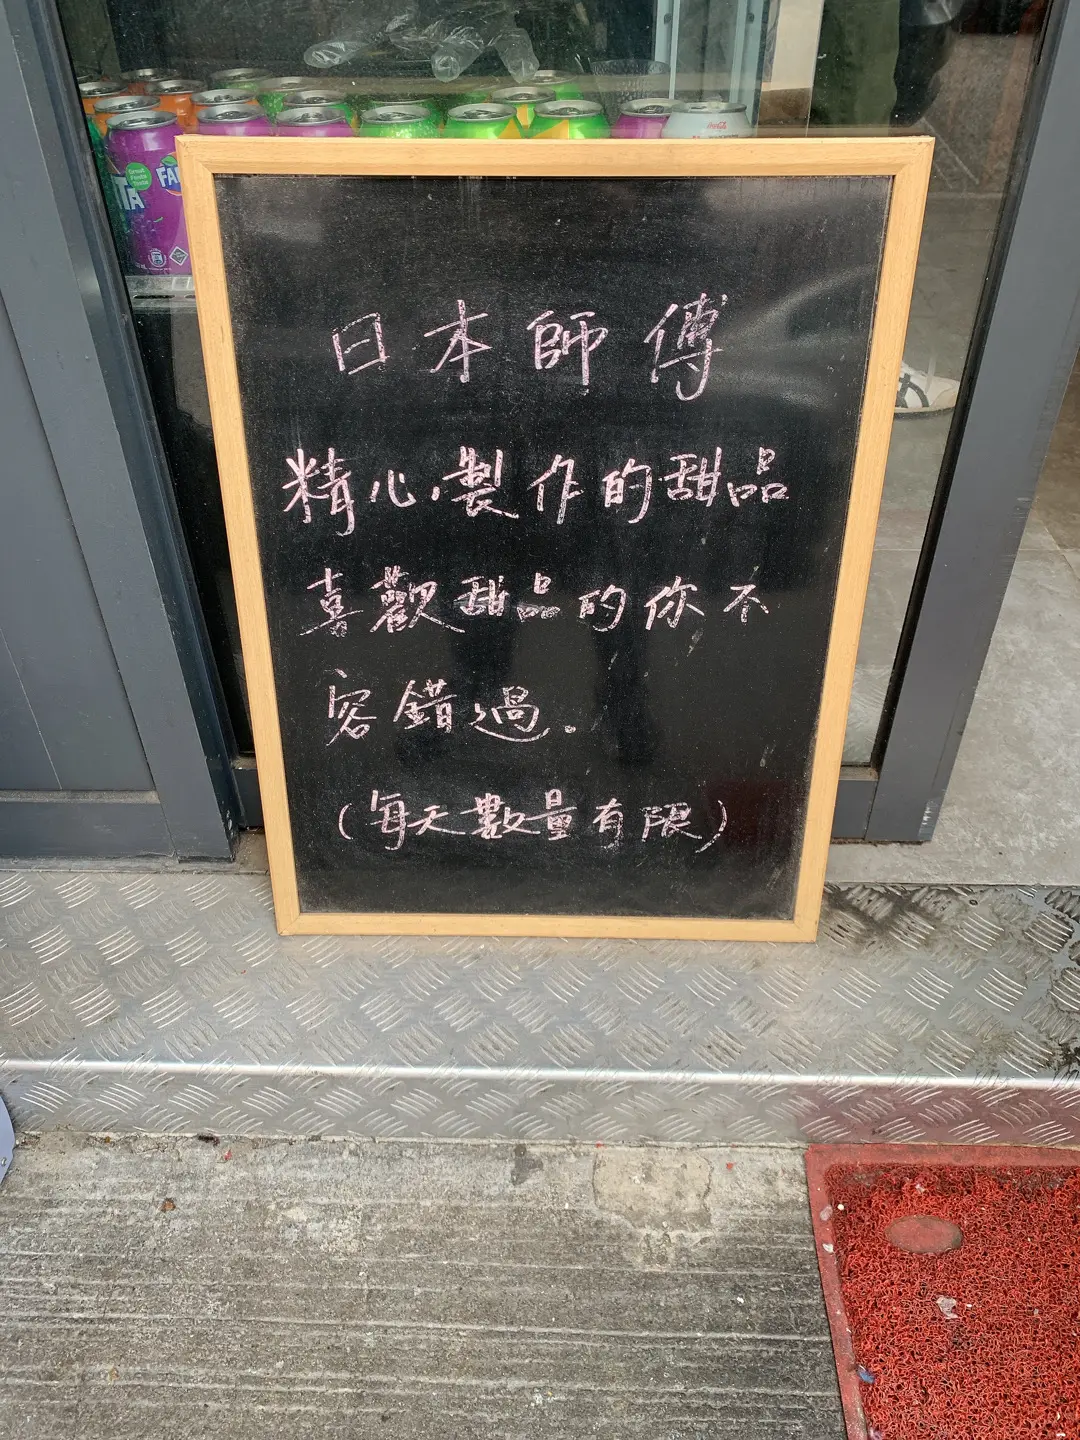 日本師傅
精心製作的甜品
喜歡甜品的你不
容錯過。
(每天數量有限)
Great
Fanta
Taste
FA
TA
Coca-Cola